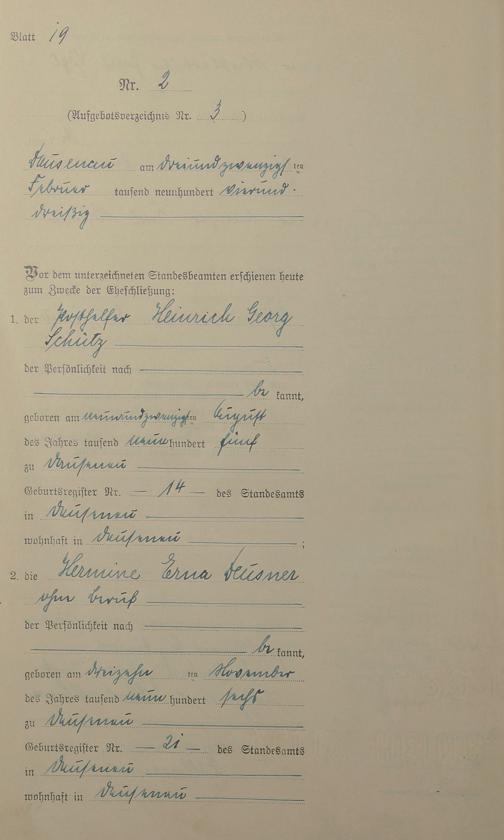 Blatt 19
Nr. 2
(Aufgebotsverzeichnis Nr. 3)
Dausenau am dreiundzwanzigsten
Februar tausend neunhundert vierund-
dreißig
Vor dem unterzeichneten Standesbeamten erschienen heute
zum Zwecke der Eheschließung:
1. der Posthelfer Heinrich Georg
Schütz
der Persönlichkeit nach
be kannt,
geboren am neunundzwanzigsten August
des Jahres tausend neun hundert fünf
zu Dausenau
Geburtsregister Nr. — 14 — des Standesamts
in Dausenau
wohnhaft in Dausenau ;
2. die Hermine Erna
ohne Beruf
der Persönlichkeit nach
be kannt,
geboren am dreizehn ten November
des Jahres tausend neun hundert sechs
zu Dausenau
Geburtsregister Nr. — 21 — des Standesamts
in Dausenau
wohnhaft in Dausenau